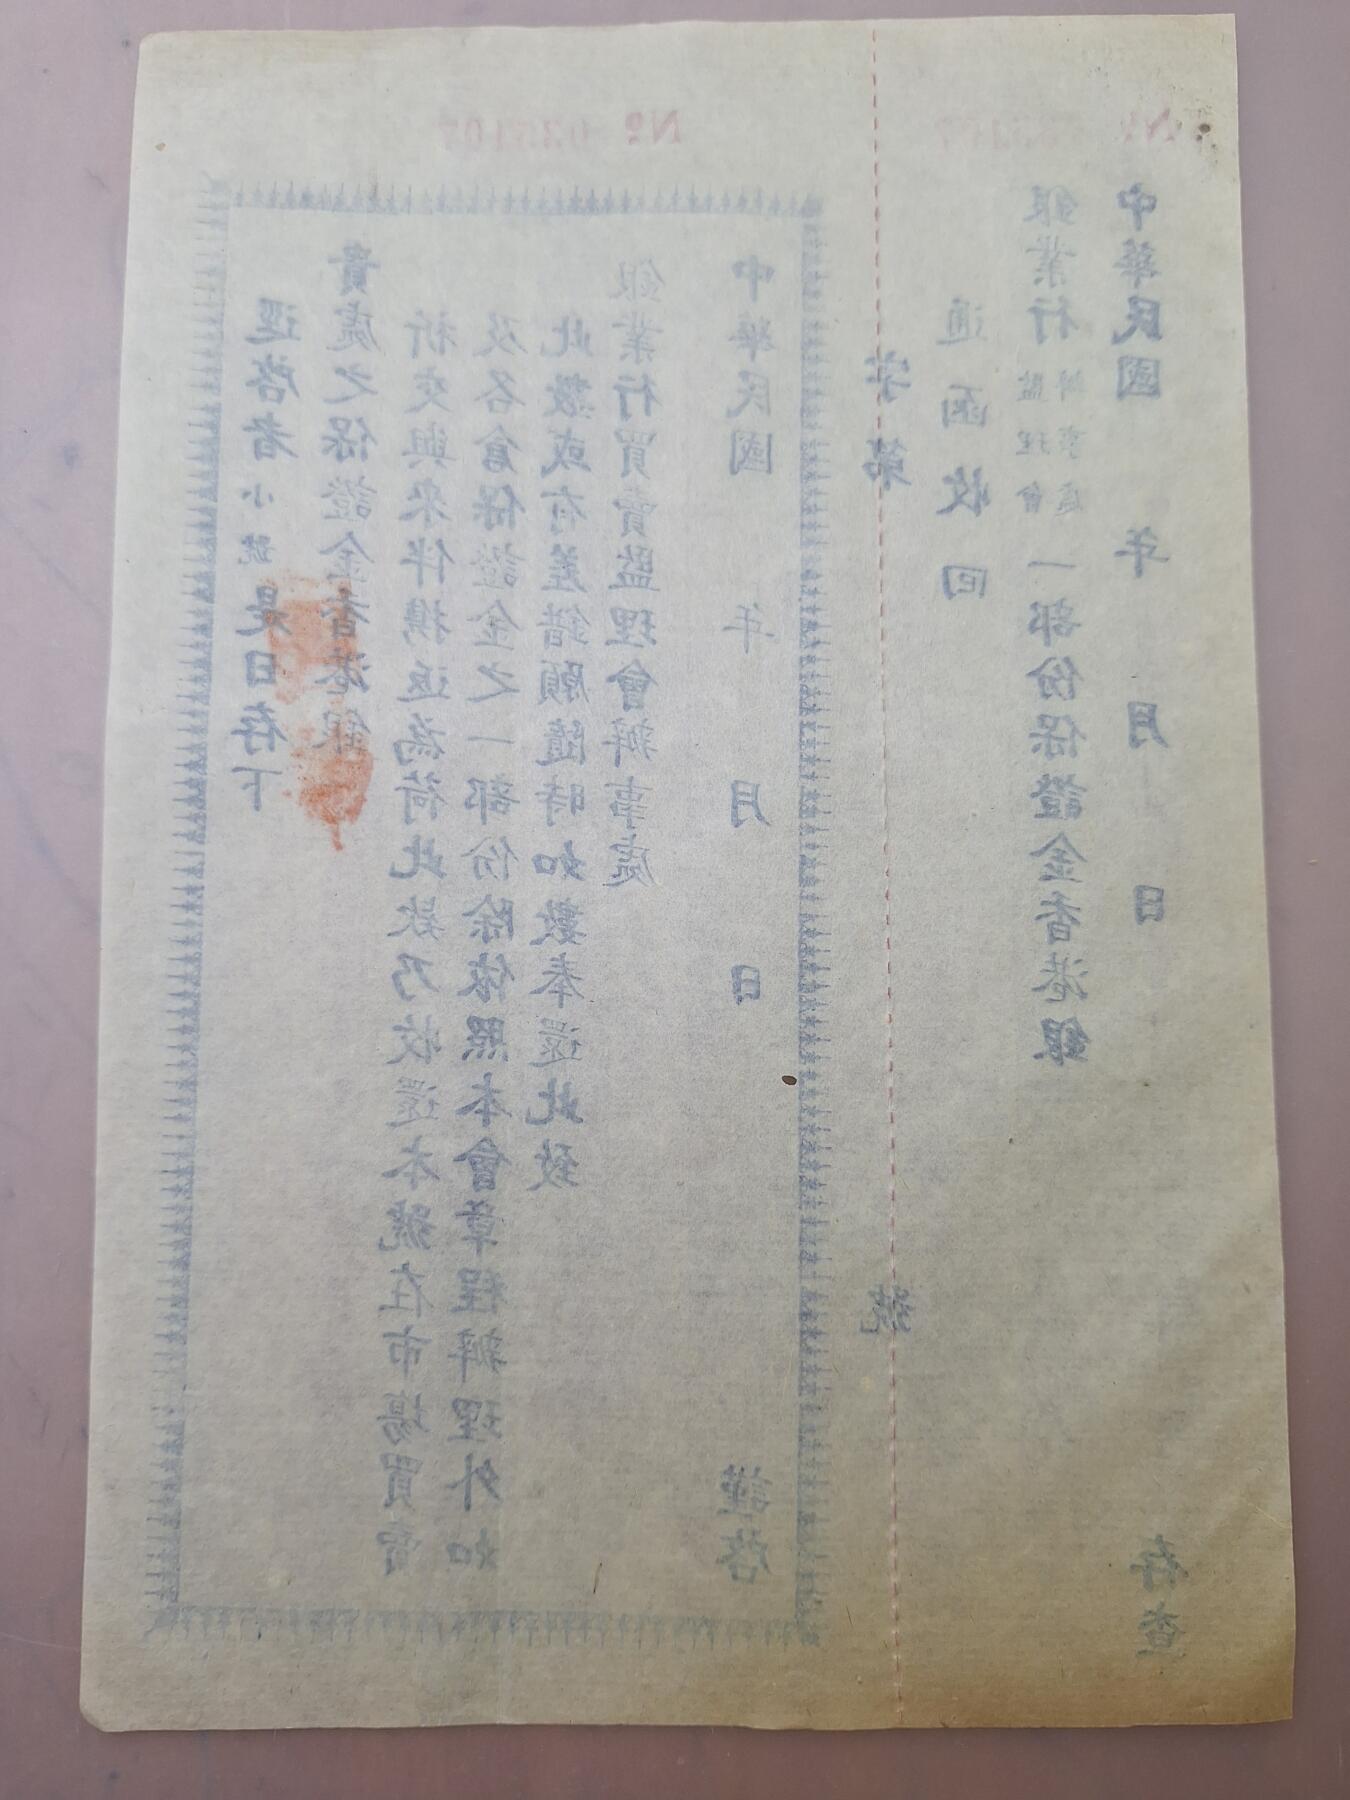 Nº
逕啓者小號是日存下
貴處之保證金香港銀
祈交與來伴携返為荷此欵乃收還本號在市場買賣
及各倉保證金之一部份除依照本會章程辦理外如
此數或有差錯願隨時如數奉還此致
銀業行買賣監理會辦事處
中華民國 年 月 日 謹啓
字第 號
Nº
通函收回
銀業行監理會辦事處一部份保證金香港銀
中華民國 年 月 日 存查